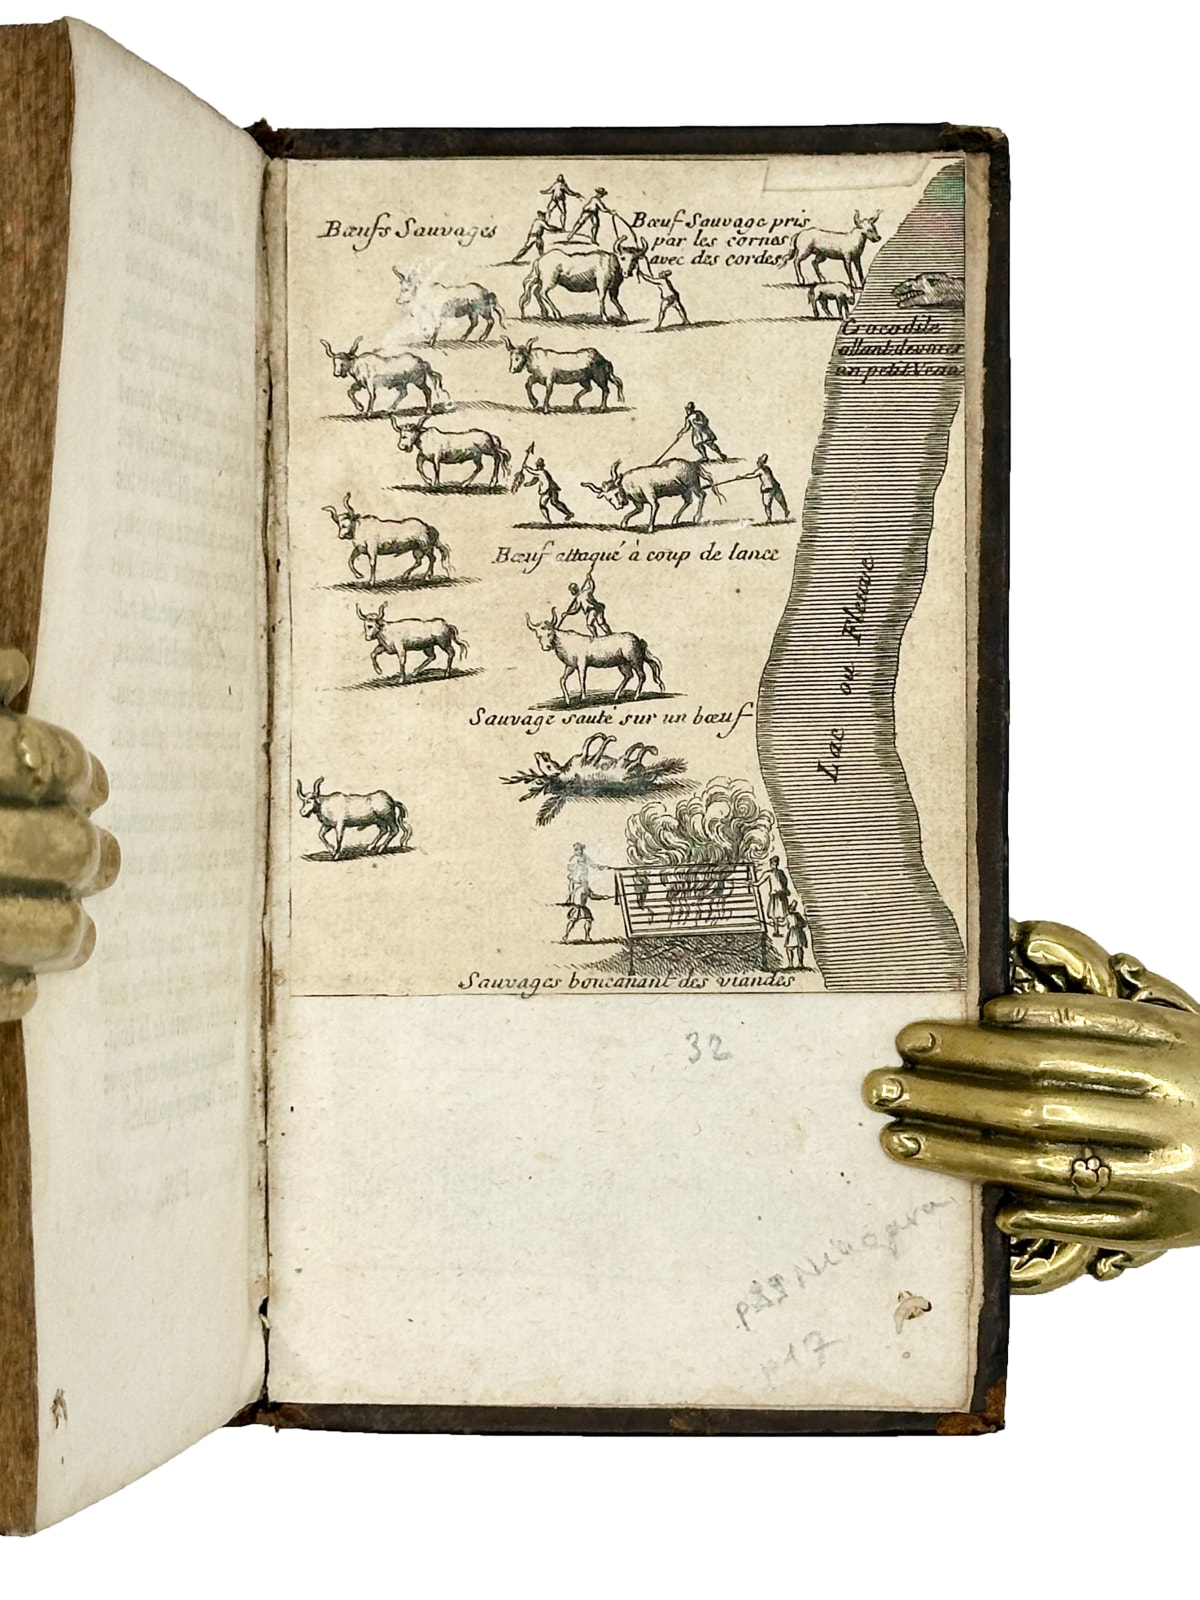 Bœufs Sauvages
Bœuf Sauvage pris
par les cornes
avec des cordes
Crocodile
allant devorer
un petit Veau
Bœuf attaqué à coup de lance
Lac ou Fleuve
Sauvage sauté sur un bœuf
Sauvages boucanant des viandes
32
Niagara
p17